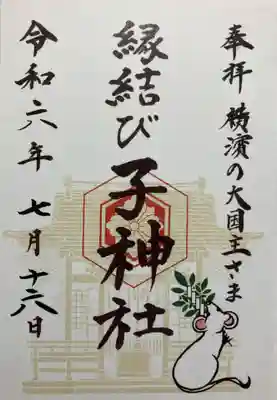 奉拝 横濱の大国主さま
縁結び 子神社
令和六年 七月 十六日